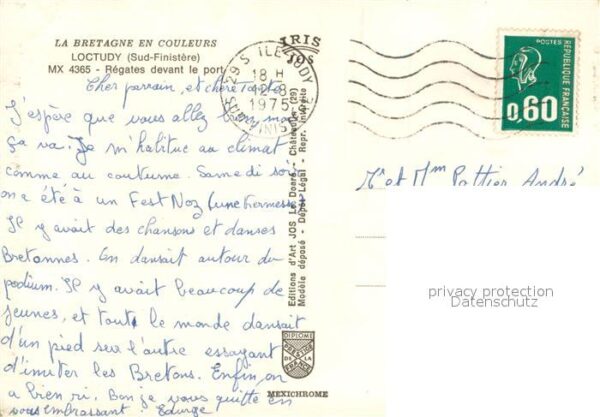 LA BRETAGNE EN COULEURS
LOCTUDY (Sud-Finistère)
MX 4365 - Régates devant le port
IRIS
JOS
29 S ILE-TUDY
18 H
12-8
1975
FINISTERE
POSTES
REPUBLIQUE FRANÇAISE
0,60
Cher parrain, et chère tante
J'espère que vous allez bien, moi
ça va. Je m'habitue au climat
comme au coutume. Samedi soir
on a été à un Fest Noz (une kermesse)
Il y avait des chansons et danses
Bretonnes. On dansait autour du
podium. Il y avait beaucoup de
jeunes, et tout le monde dansait
d'un pied sur l'autre essayant
d'imiter les Bretons. Enfin, on
a bien ri. Bon je vous quitte en
vous embrassant. Edwige
Editions d'Art JOS Le Doaré - Châteaulin (29)
Modèle déposé - Dépôt Légal - Repr. Interdite
DIPLOME
PRESTIGE
DE LA
FRANCE
MEXICHROME
Mr et Mm Pottier André
privacy protection
Datenschutz